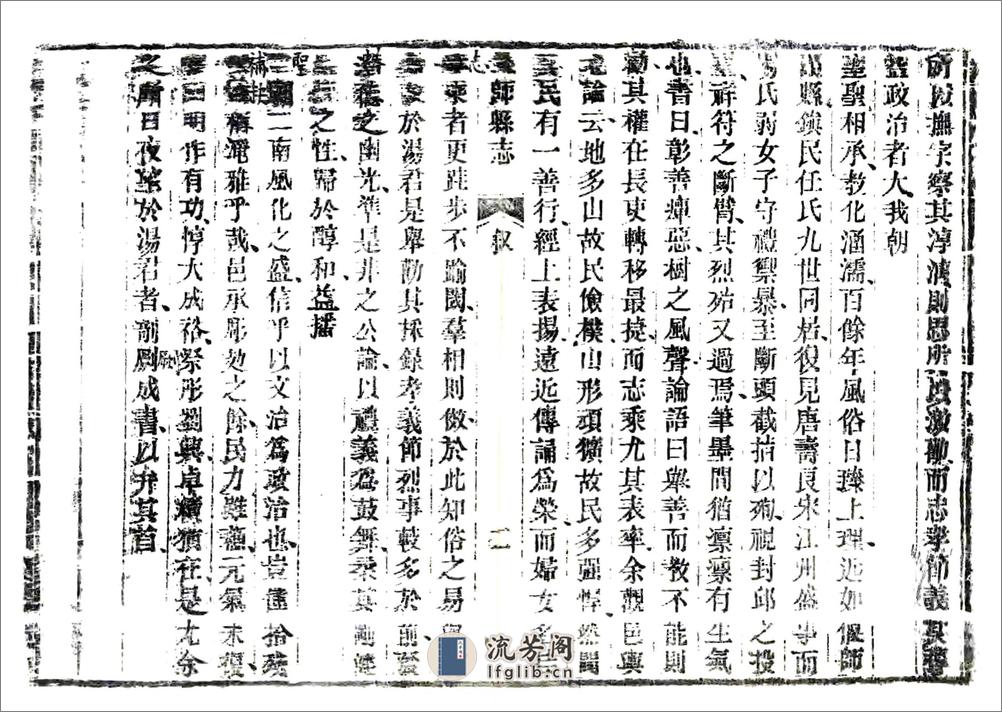 所以撫字察其淳漓則思所以激勸而志舉節義
政治者大我朝
聖聖相承教化涵濡百餘年風俗日臻上理近如偃師
縣鎮民任氏九世同居復見唐壽良宋江州盛事而
氏弱女子守禮禦暴至斷頭截指以殉視封邱之投
祥符之斷臂其烈殆又過焉筆墨間猶凛凛有生氣
也書曰彰善癉惡樹之風聲論語曰舉善而教不能則
勸其權在長吏轉移最捷而志乘尤其表率余觀邑輿
論云地多山故民儉樸山形頑獷故民多强悍然聞
民有一善行經上表揚遠近傳誦為榮而婦女
師縣志
叙
二
乘者更跬步不踰閾羣相則傚於此知俗之易
於湯君是舉勷其採錄孝義節烈事較多於前
德之幽光準是井之公論以禮義為鼓舞柔其剛
之性歸於醇和益播
聖
二南風化之盛信乎以文治為政治也豈僅拾殘
補
稱淹雅乎哉邑承彫攰之餘民力難蘇元氣未復
曰明作有功惇大成裕祭彤劉興卓續猶在是尤余
之所日夜望於湯君者剞劂成書以弁其首
流芳阁
lfglib.cn.com